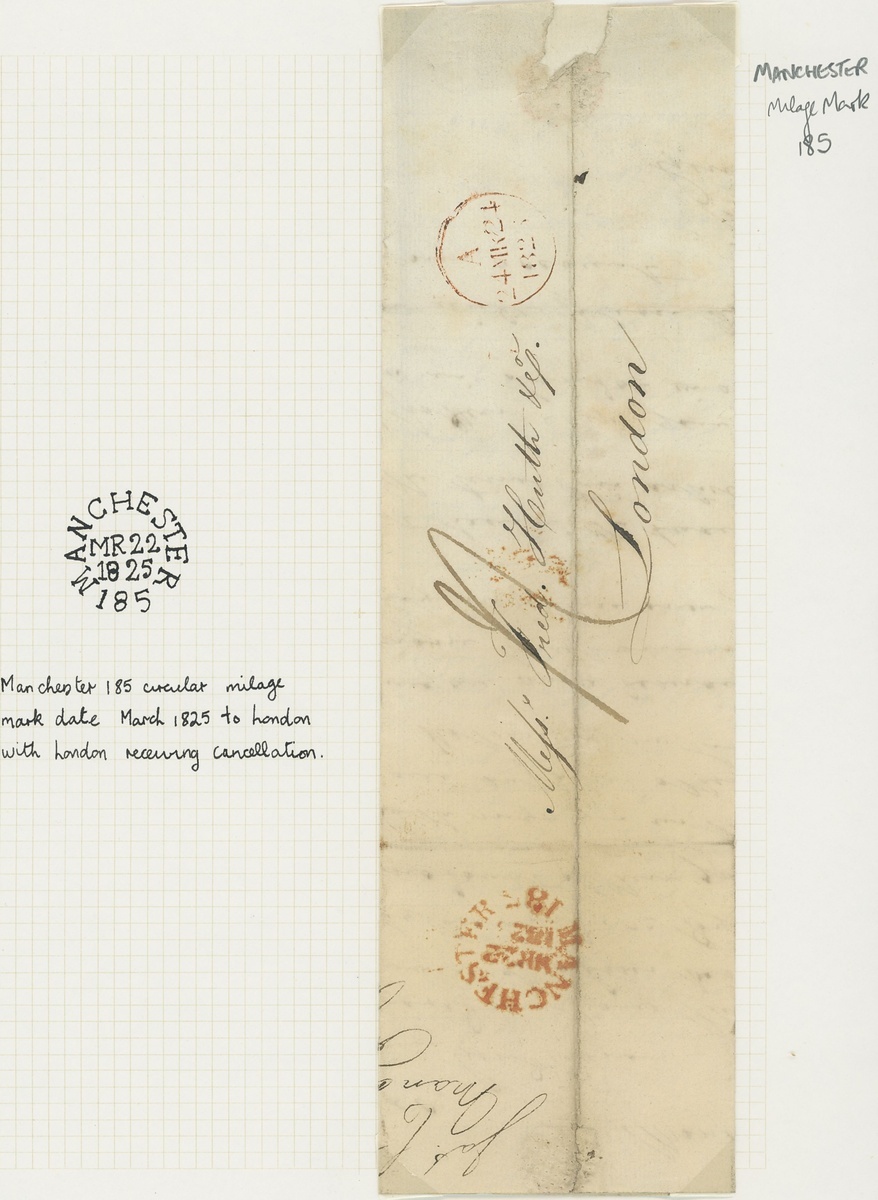 MANCHESTER
Milage Mark
185
MANCHESTER
MR 22
1825
185
Manchester 185 circular milage
mark date March 1825 to London
with London receiving cancellation.
A
24 MR 24
182
Mess.rs Fred. Huth &
London
MANCHESTER
MR 22
182
18